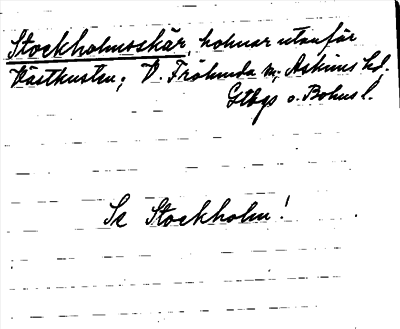 Stockholmsskär, holmar utanför
Västkusten; V. Frölunda sn, Askims hd.
Gtbgs o. Bohus l.
Se Stockholm!